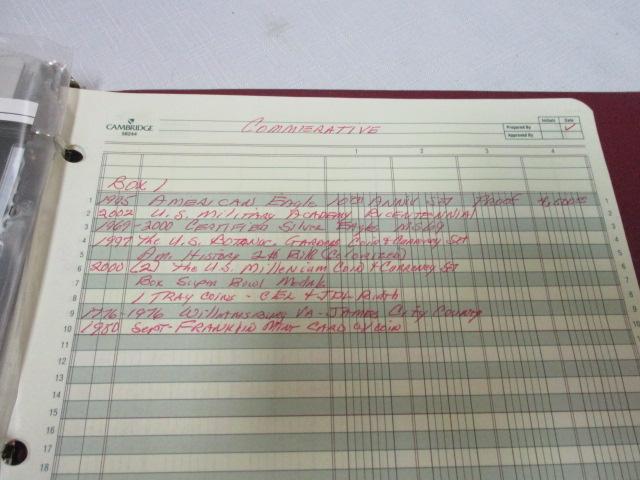 CAMBRIDGE
COMMERATIVE
Prepared By
Initials
Date
Approved By
1 2 3 4
BOX 1
1 1995 AMERICAN Eagle 10th ANNIV SET PROOF
2 2002 U.S. Military Academy Bicentennial
3 1969-2000 CERTIFIED Silver Eagle MS69
4 1997 The U.S. BOTANIC GARDENS Coin & Currency Set
5 Am. History 2$ Bill (Colorized)
6 2000 (2) The U.S. Millenium Coin & Currency Set
7 Box Super Bowl Medals
8 1 TRAY COINS -
9 1776-1976 Williamsburg VA - James City County
10 1980 Sept - FRANKLIN MINT CARD w/coin
11
12
13
14
15
16
17
18